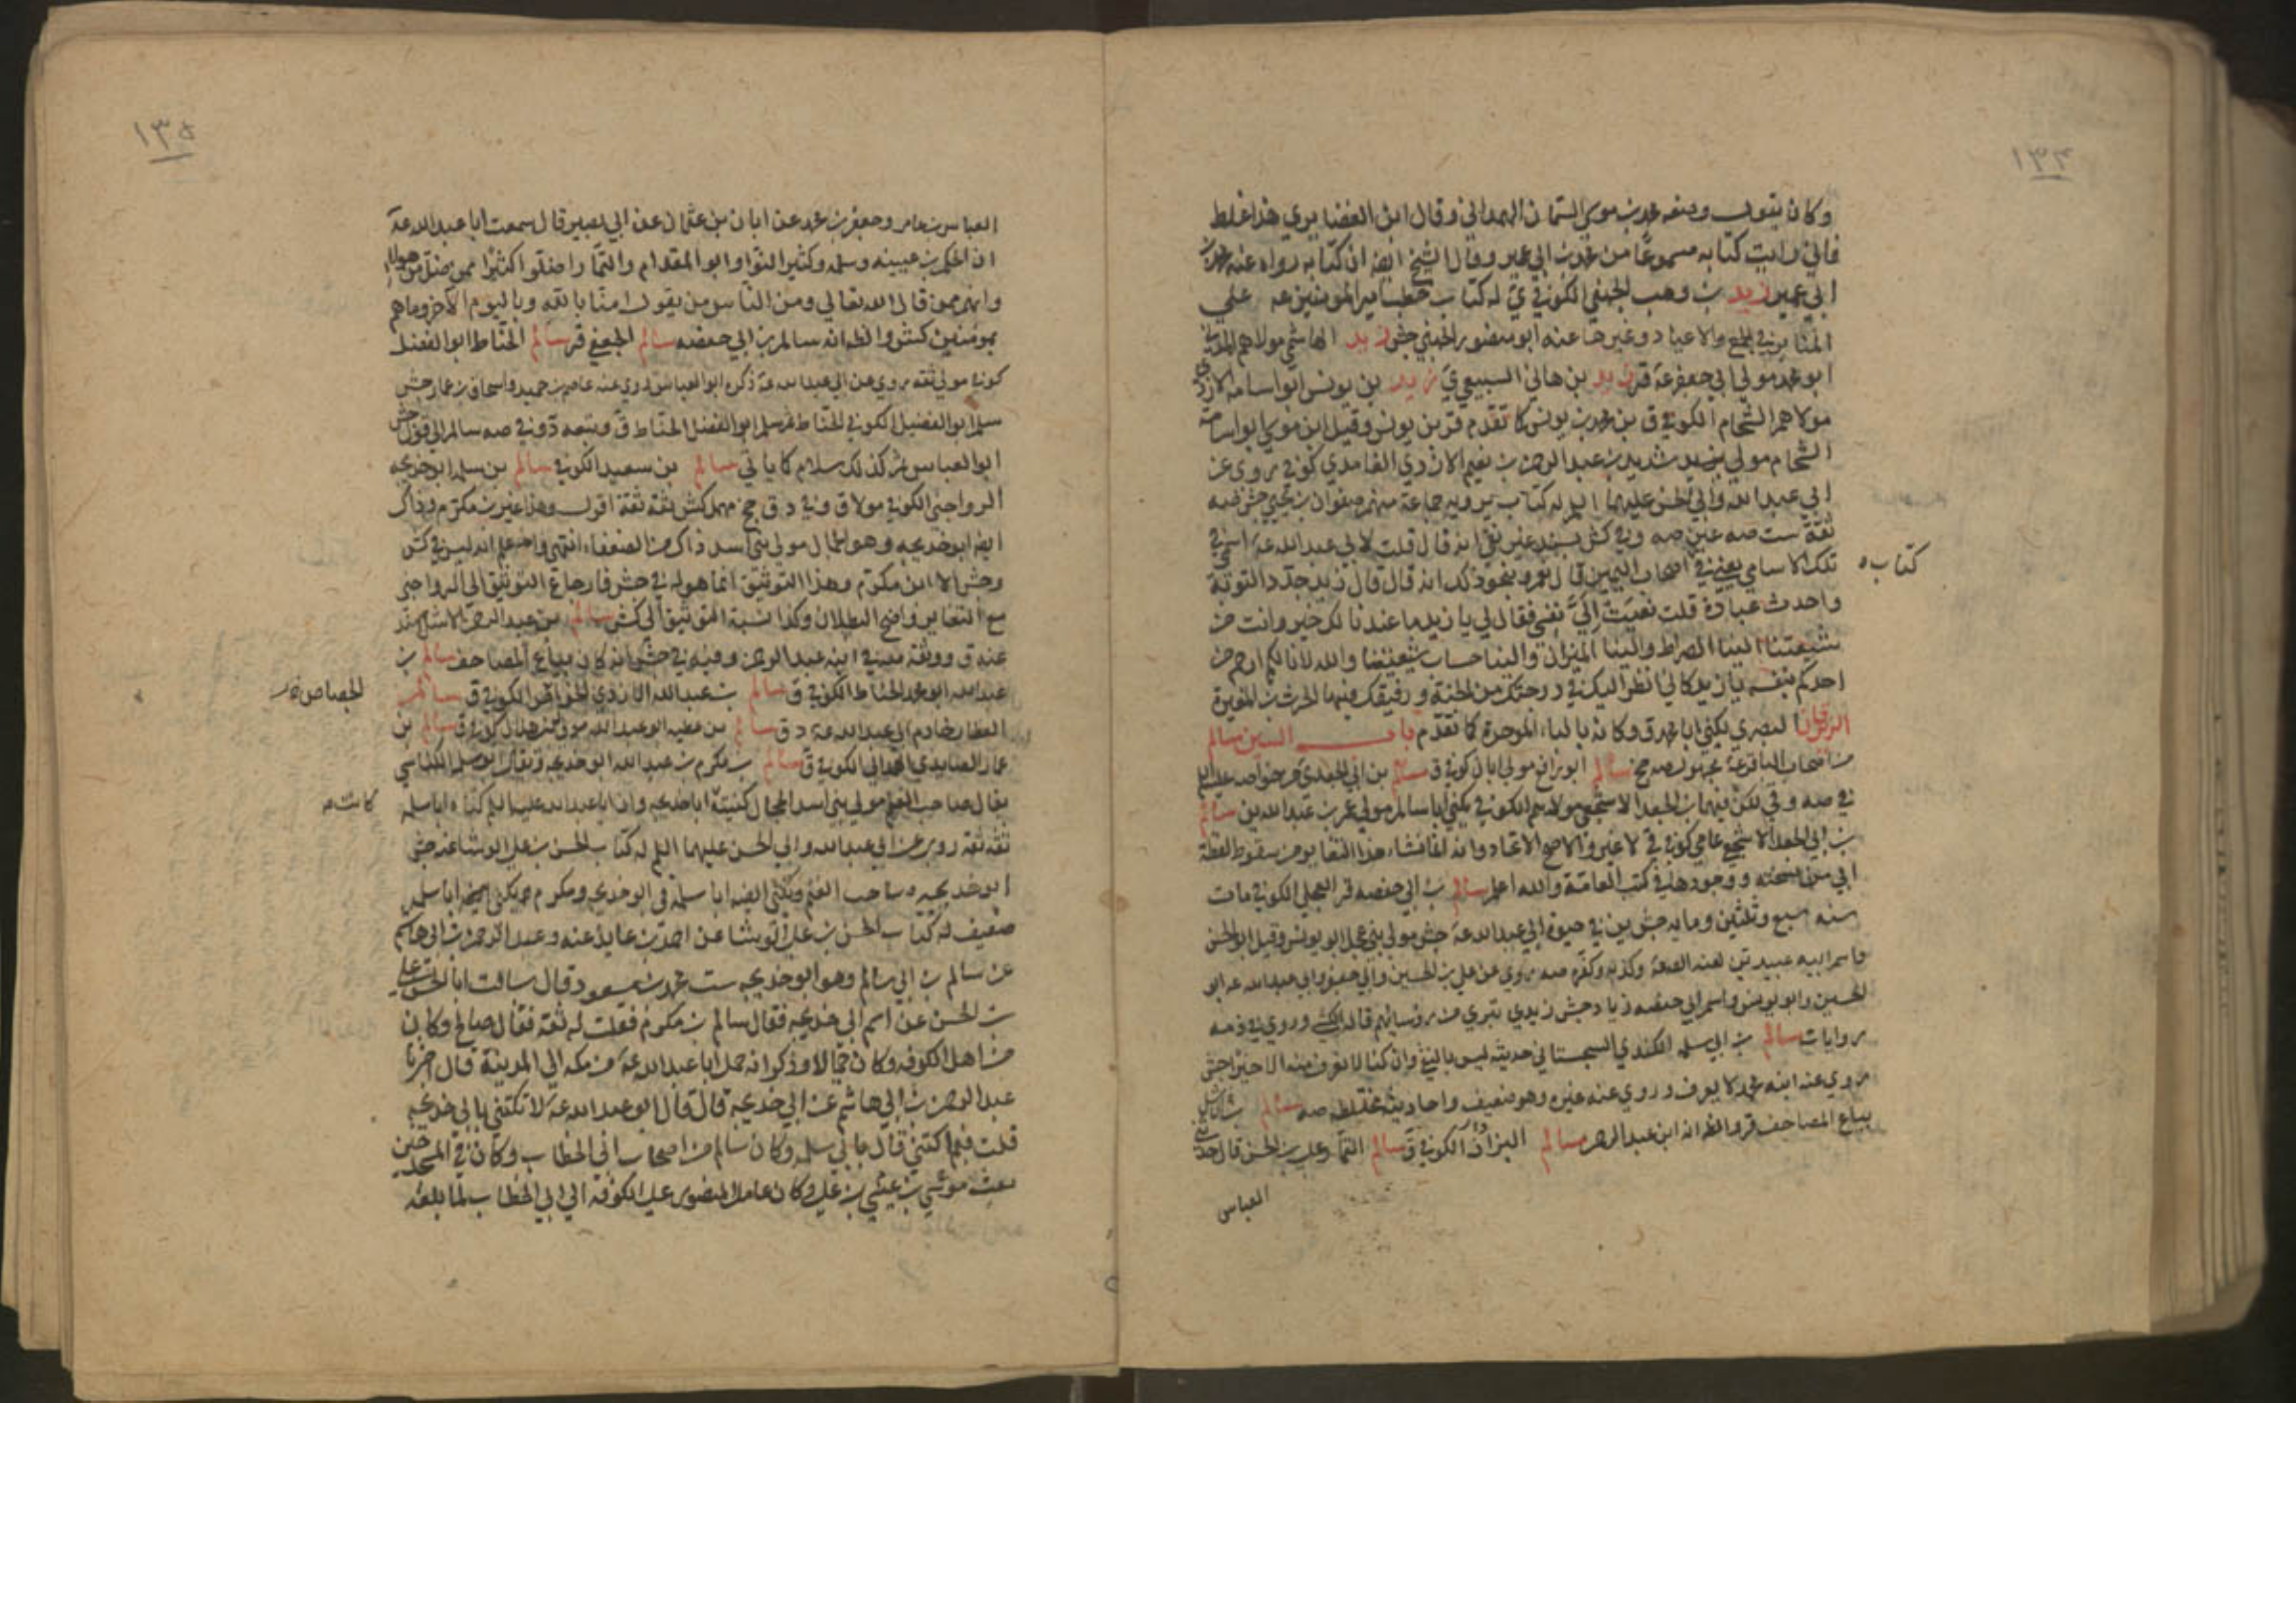 ١٣٤
وكان يقول وضعه محمد بن موسى السمان الهمداني وقال ابن الغضايري هذا غلط
فاني رايت كتابه مسموعا من محمد بن ابي عمير وقال الشيخ ايضا ان كتابه رواه عنه محمد بن
ابي عمير زيد بن وهب الجهني الكوفي ي له كتاب خطب امير المومنين عه على
المنابر في الجمع والاعياد وغيرها عنه ابو منصور الجهني جش زيد الهاشمي مولاهم المدني
ابو محمد مولى ابي جعفر عه قر زيد بن هاني السبيعي ي زيد بن يونس ابو اسامه الازدي
مولاهم الشحام الكوفي ق بن محمد بن يونس كا تقدم قر بن يونس وقيل ابن موسى ابو اسامة
الشحام مولى شديد بن عبد الرحمن بن نعيم الازدي الغامدي كوفي روى عن
ابي عبد الله وابي الحسن عليهما السلم له كتاب يرويه جماعة منهم صفوان بن يحيى جش ضه
ثقة ست صه عين صه وفي كش بسند غير نقي انه قال قلت لابي عبد الله عه اسمي في
تلك الاسامي يعني في اصحاب اليمين قال نعم وبنحو ذلك انه قال قال زيد جدد التوبة
كتاب ه
واحدث عبادة قلت نعيت الي نفسي فقال لي يا زيد ما عندنا لك خير وانت من
شيعتنا الينا الصراط والينا الميزان والينا حساب شيعتنا والله لانا لكم ارحم من
احدكم بنفسه يا زيد كاني انظر اليك في درجتك من الجنة ورفيقك فيها الحرث بن المغيرة
الزبرقان البصري يكنى ابا محمد ق وكانه بالباء الموحدة كا تقدم باب السين سالم
من اصحاب الباقر عه مجهول صه جخ سالم ابو برانج مولى ابان كوفي ق سالم بن ابي الجعد ي من خواصه عليه السلم
في صه وفي لكن فيهما بن الجعد الاشجعي مولاهم الكوفي يكنى ابا سالم مولى عمر بن عبد الله بن سالم
بن ابي الجعد الاشجعي عامي كوفي في لا غير والاصح الاتحاد وانه لما نشاء هذا التغاير من سقوط لفظة
ابي من نسخته ووجودها في كتب العامة والله اعلم سالم بن ابي حفصه قر العجلي الكوفي مات
سنه سبع وثلثين ومايه جش بين في حيوة ابي عبد الله عه جش مولى بني عجل ابو يونس وقيل ابو الحسن
واسم ابيه عبيد تبن لعنه الصعه وكذبه وكفره صه روى عن علي بن الحسين وابي جعفر وابي عبد الله عه ابو
الحسن وابو يونس واسم ابي حفصه زياد جش زيدي تبري من روسائهم قاله الكشي وروي في ذمه
روايات سالم بن ابي سلمه الكندي السجستاني حديثه ليس بالنقي وان كنا لا نعرف منه الا خيرا جش
روى عنه ابنه محمد لا يعرف وروى عنه غيره وهو ضعيف واحاديثه مختلطه صه سالم
بياع المصاحف قر والظ انه ابن عبد الرحمن سالم البزاز الكوفي ق سالم التمار علي بن الحسن قال حدثني
العباس
١٣٥
العباس بن عامر وجعفر بن محمد عن ابان بن عثمان عن ابي بصير قال سمعت ابا عبد الله عه
ان الحكم بن عيينه وسلمه وكثير النوا وابو المقدام والتمار اضلوا كثيرا ممن ضل من هولاء
وانهم ممن قال الله تعالى ومن الناس من يقول امنا بالله وباليوم الاخر وما هم
بمومنين كش والظ انه سالم بن ابي حفصه سالم الجعفي قر سالم الحناط ابو الفضل
كوفي مولى ثقه روى عن ابي عبد الله عه ذكره ابو العباس روى عنه عاصم بن حميد واسحاق بن عمار جش
سلم ابو الفضيل الكوفي الحناط ثم سلم ابو الفضل الحناط ق وتبعه د وفي صه سالم الى قوله جش
ابو العباس ثم كذلك سلام كا ياتي سالم بن سعيد الكوفي سالم بن سلمه ابو خديجه
الرواجني الكوفي مولا ق وفي د ق جخ مهمل كش ثقة ثقة اقول وهذا غير بن مكرم وذاك
ايضا ابو خديجه وهو الجمال مولى بني اسد ذاك من الضعفاء انتهى واعلم انه ليس في كش
وجش الا ابن مكرم وهذا التوثيق انما هو له في جش فارجاع التوثيق الى الرواجني
مع التغاير واضح البطلان وكذا نسبة التوثيق الى كش سالم بن عبد الرحمن الاشل اسند
عنه ق ووثقه في ابنه عبد الرحمن وفيه في جش انه كان بياع المصاحف سالم بن
عبد الله ابو محمد الحناط الكوفي ق سالم بن عبد الله الازدي الكوفي ق سالم
الجصاص ه
العطار خادم ابي عبد الله عه د ق سالم بن عطيه ابو عبد الله مولى بني هلال كوفي ق سالم بن
عمار الصايدي الهمداني الكوفي ق سالم بن مكرم بن عبد الله ابو خديجه ويقال ابو سلمه الكناسي
يقال صاحب الغنم مولى بني اسد الجمال كنيته ابا خديجه وان ابا عبد الله عليه السلم كناه ابا سلمه
كانت ه
ثقه ثقه روى عن ابي عبد الله وابي الحسن عليهما السلم له كتاب الحسن بن علي الوشا عنه جش
ابو خديجه ه صاحب الغنم ويكنى ايضا ابا سلمة ق ابو خديجه ومكرم يكنى ايضا ابا سلمه
ضعيف له كتاب الحسن بن علي الوشا عن احمد بن عايذ عنه وعبد الرحمن بن ابي هاشم
عن سالم بن ابي سالم وهو ابو خديجه ست محمد بن مسعود قال سالت ابا الحسن علي
بن الحسن عن اسم ابي خديجه فقال سالم بن مكرم فقلت له ثقة فقال صالح وكان
من اهل الكوفه وكان جمالا وذكر انه حمل ابا عبد الله عه من مكه الى المدينة قال اخبرنا
عبد الرحمن بن ابي هاشم عن ابي خديجه قال قال ابو عبد الله عه لا تكتني بابي خديجه
قلت فبم اكتني قال بابي سلمه وكان سالم من اصحاب ابي الخطاب وكان في المسجد حين
بعث موسى بن عيسى بن علي وكان عامل المنصور على الكوفه الى ابي الخطاب لما بلغه